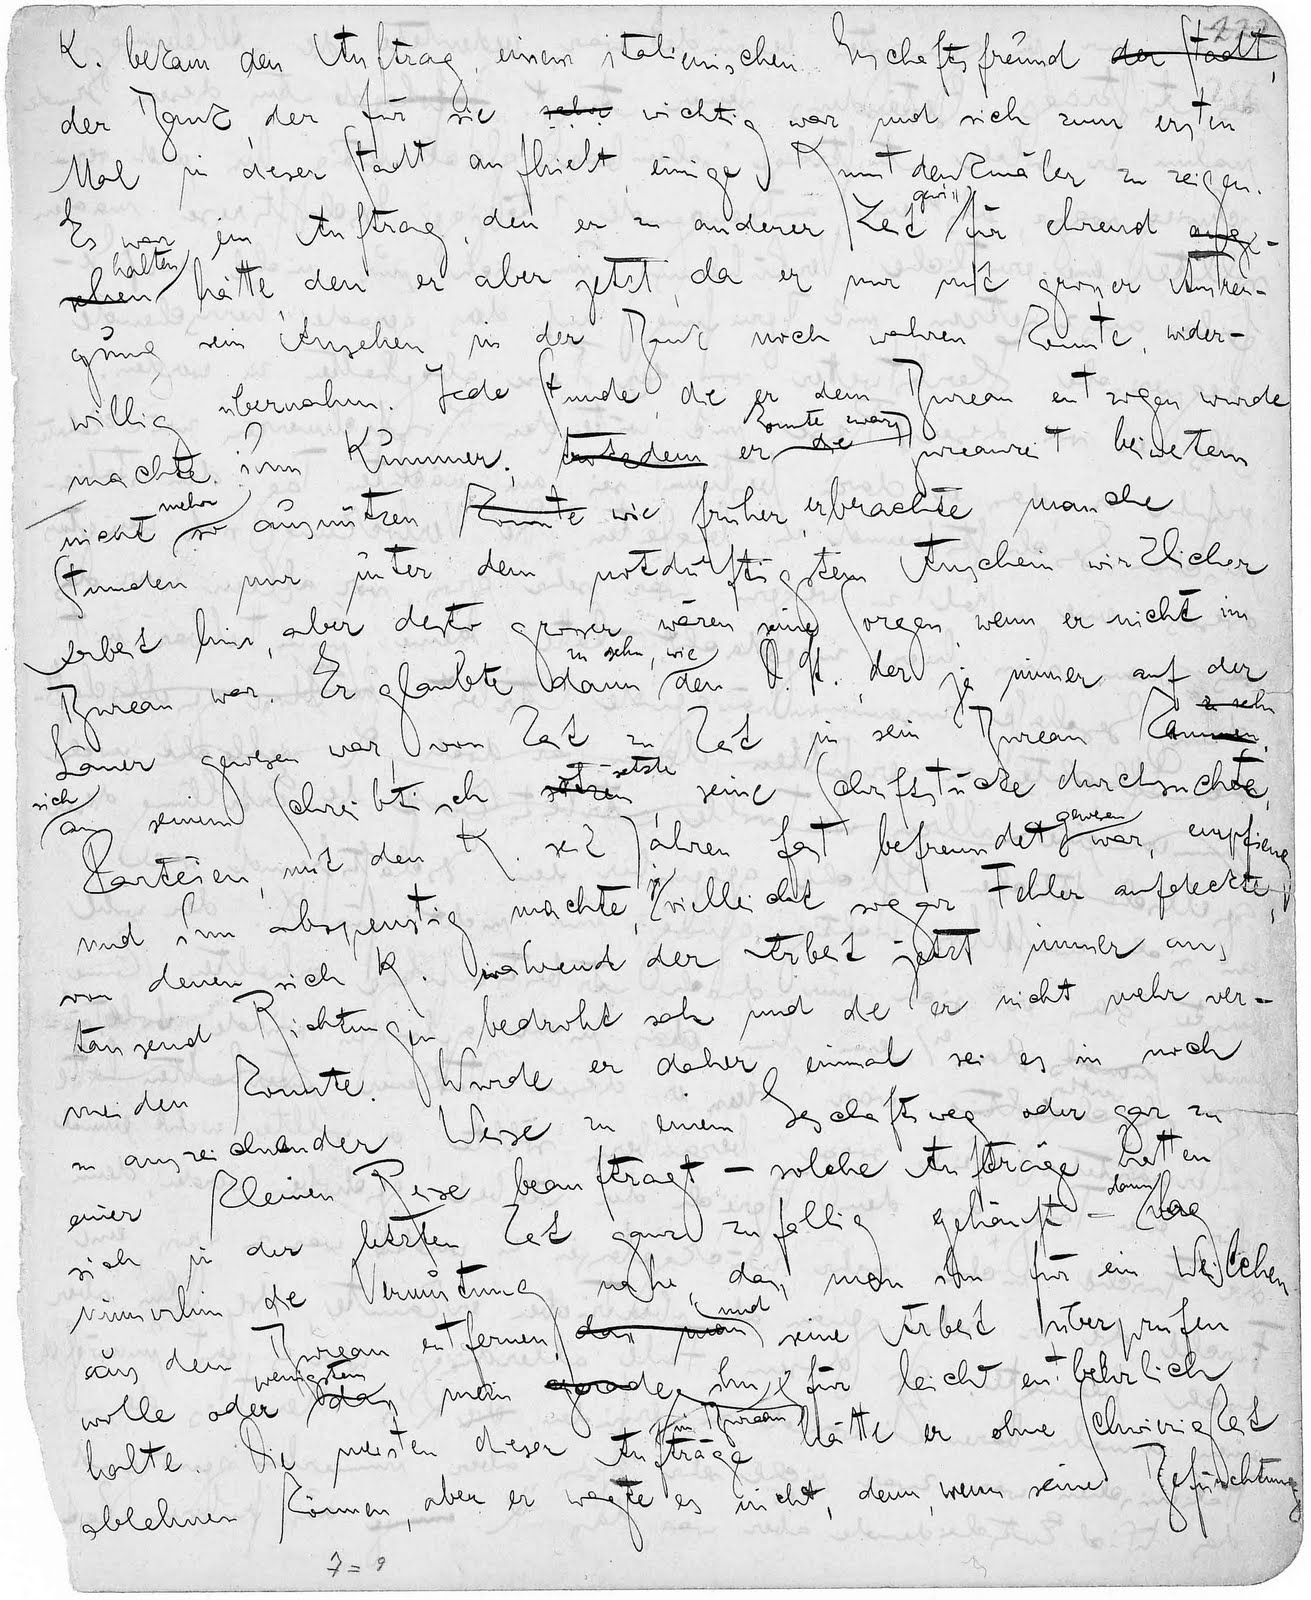 K. bekam den Auftrag, einem italienischen Geschäftsfreund der Stadt,
der Bank, der für sie sehr wichtig war und sich zum ersten
Mal in dieser Stadt aufhielt, einige Kunstdenkmäler zu zeigen.
gewiß
Es war ein Auftrag, den er zu anderer Zeit für ehrend ange-
halten
sehen hätte, den er aber jetzt, da er nur mit grosser Anstren-
gung sein Ansehen in der Bank noch wahren konnte, wider-
willig übernahm. Jede Stunde, die er dem Bureau entzogen wurde
konnte zwar
machte ihm Kummer; trotzdem er die Bureauzeit beiweitem
mehr
nicht so ausnützen konnte wie früher, er brachte manche
Stunden nur unter dem notdürftigsten Anschein wirklicher
Arbeit hin, aber desto grösser waren seine Sorgen, wenn er nicht im
zu sehn, wie
Bureau war. Er glaubte dann den D. St. der ja immer auf der
zu sehn
Lauer gewesen war, von Zeit zu Zeit in sein Bureau kam
setzte
sich
an seinem Schreibtisch setzen seine Schriftstücke durchsuchte,
gewesen
Parteien, mit den K. seit Jahren fast befreundet war, empfieng
und ihm abspenstig machte, vielleicht sogar Fehler aufdeckte,
von denen sich K. während der Arbeit jetzt immer aus
tausend Richtungen bedroht sah und die er nicht mehr ver-
meiden konnte. Wurde er daher einmal sei es in noch
so auszeichnender Weise zu einem Geschäftsweg oder gar zu
einer kleinen Reise beauftragt - solche Aufträge hatten
dann
sich in der letzten Zeit ganz zufällig gehäuft - lag
immerhin die Vermutung nahe, dass man ihn für ein Weilchen
und
aus dem Bureau entfernen, dass man seine Arbeit überprüfen
wenigstens
wolle oder dass man gerade ihn für leicht entbehrlich
im Bureau
halte. Die meisten dieser Aufträge hätte er ohne Schwierigkeit
ablehnen können, aber er wagte es nicht, denn, wenn seine Befürchtung